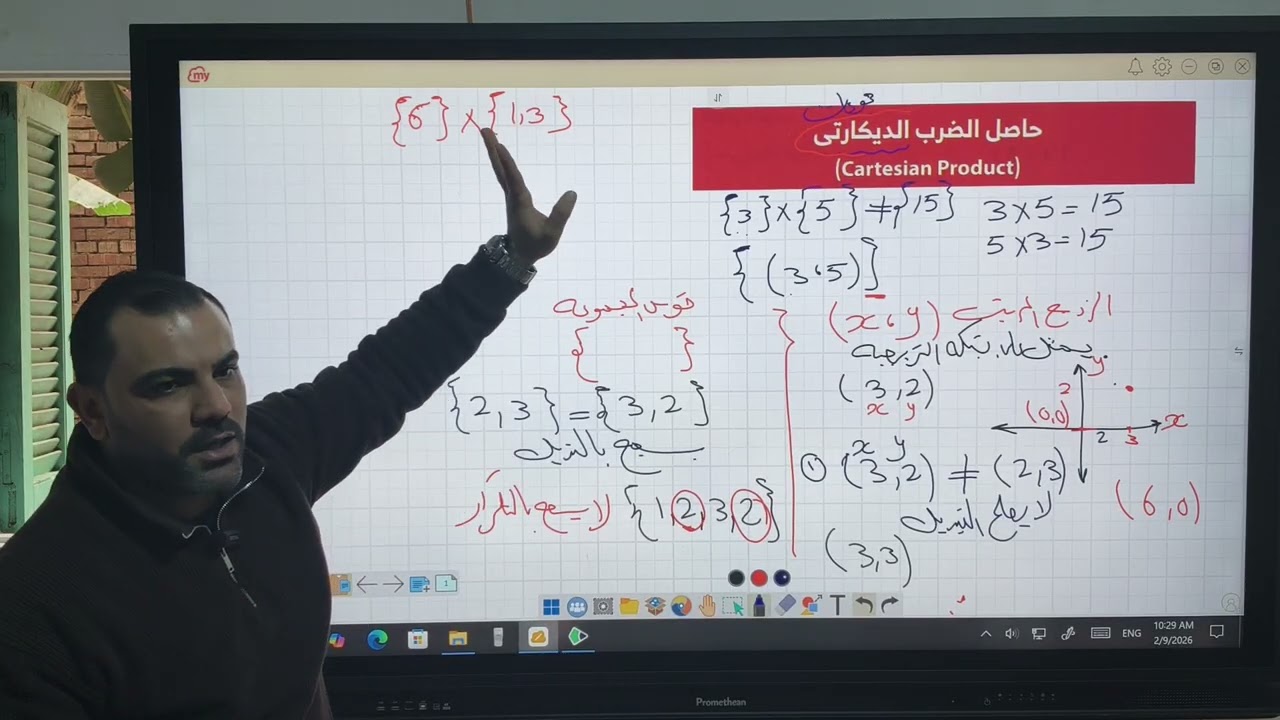 my
{6} × {1,3}
حاصل الضرب الديكارتى
(Cartesian Product)
{3} × {5} ≠ {15}
3 × 5 = 15
5 × 3 = 15
{ (3،5) }
الزوج المرتب (x، y)
(3,2)
x y
y
2
(0,0)
2
3
x
x y
① (3,2) ≠ (2,3)
(6,0)
(3,3)
قوس المجموعة
{ }
{2,3} = {3,2}
يسمح بالتبديل
لا يسمح بالتكرار {1,2,3,2}
1
T
ENG
10:29 AM
2/9/2026
Promethean